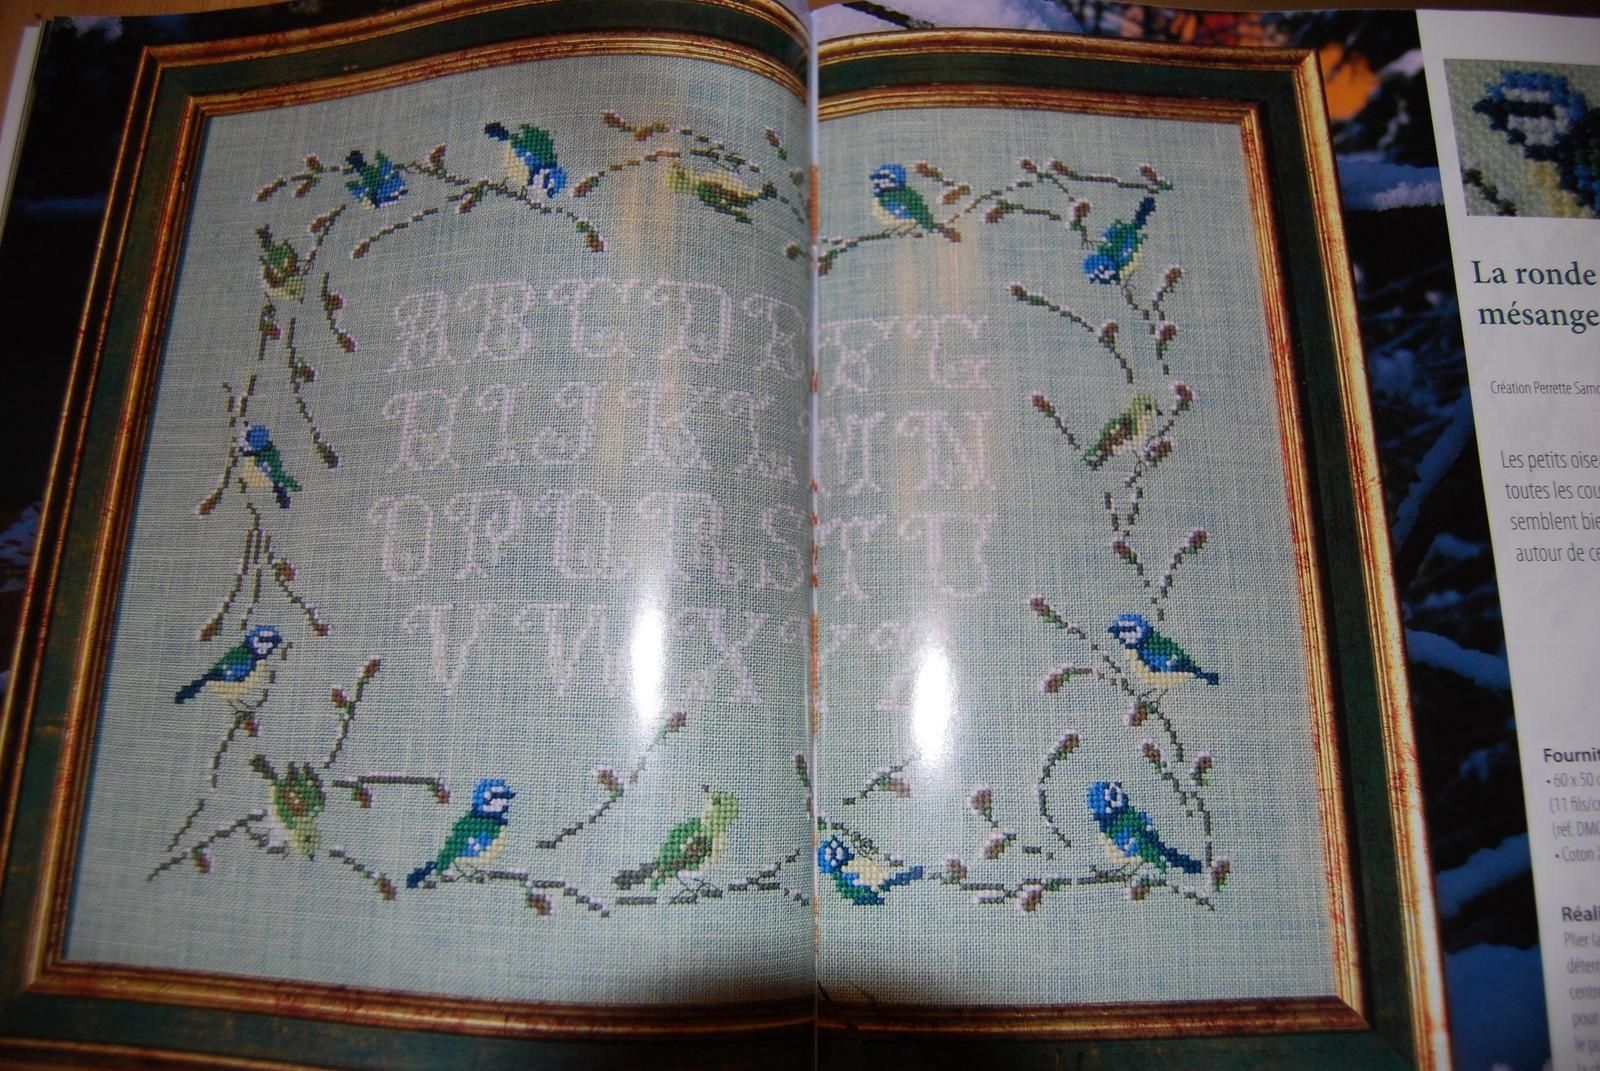 A B C D E F G
H I J K L M N
O P Q R S T U
V W X Y Z
La ronde
mésange
Création Perrette Samo
Les petits oise
toutes les cou
semblent bie
autour de ce
Fournit
• 60 x 50 c
(11 fils/c
(réf. DMC
• Coton à
Réali
Plier la
déterm
centre
pour
le po